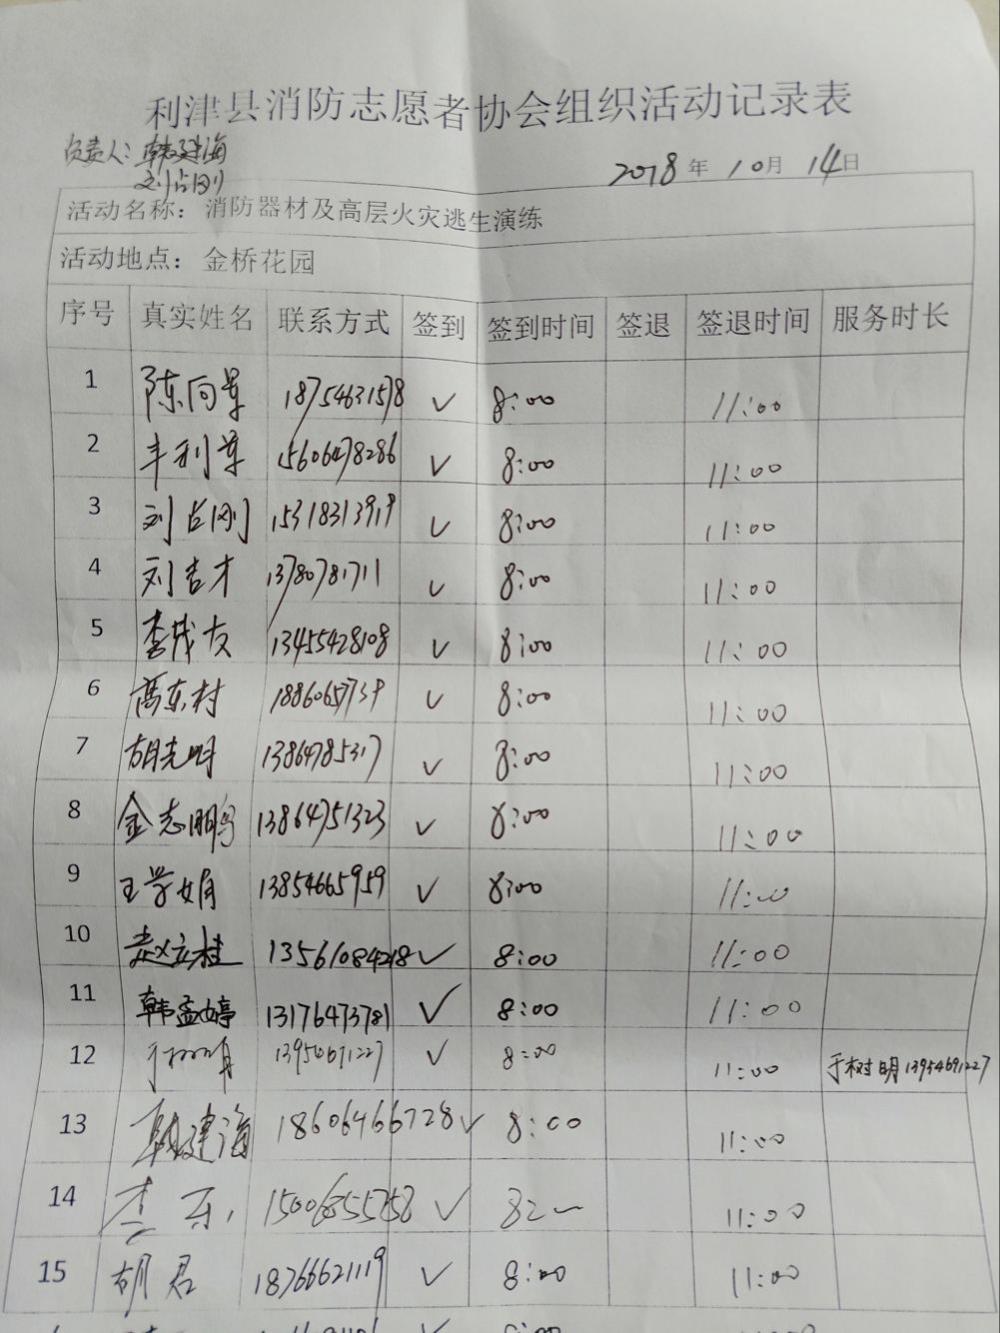 利津县消防志愿者协会组织活动记录表
负责人：韩建海
刘占刚
2018年10月14日
活动名称：消防器材及高层火灾逃生演练
活动地点：金桥花园
序号 真实姓名 联系方式 签到 签到时间 签退 签退时间 服务时长
1 陈向军 18754631578 ✓ 8:00 11:00
2 丰利军 15606478286 ✓ 8:00 11:00
3 刘占刚 15318313919 ✓ 8:00 11:00
4 刘吉才 13780781711 ✓ 8:00 11:00
5 李茂友 13455428108 ✓ 8:00 11:00
6 高东村 ✓ 8:00 11:00
7 胡克明 13864785317 ✓ 8:00 11:00
8 金志鹏 13864751323 ✓ 8:00 11:00
9 王学娟 13854665959 ✓ 8:00 11:00
10 赵立桂 13561084218 ✓ 8:00 11:00
11 韩孟婷 13176473781 ✓ 8:00 11:00
12 ✓ 8:00 11:00 于树明 13954691227
13 韩建海 18606466728 ✓ 8:00 11:00
14 ✓ 11:00
15 胡君 18766621119 ✓ 8:00 11:00